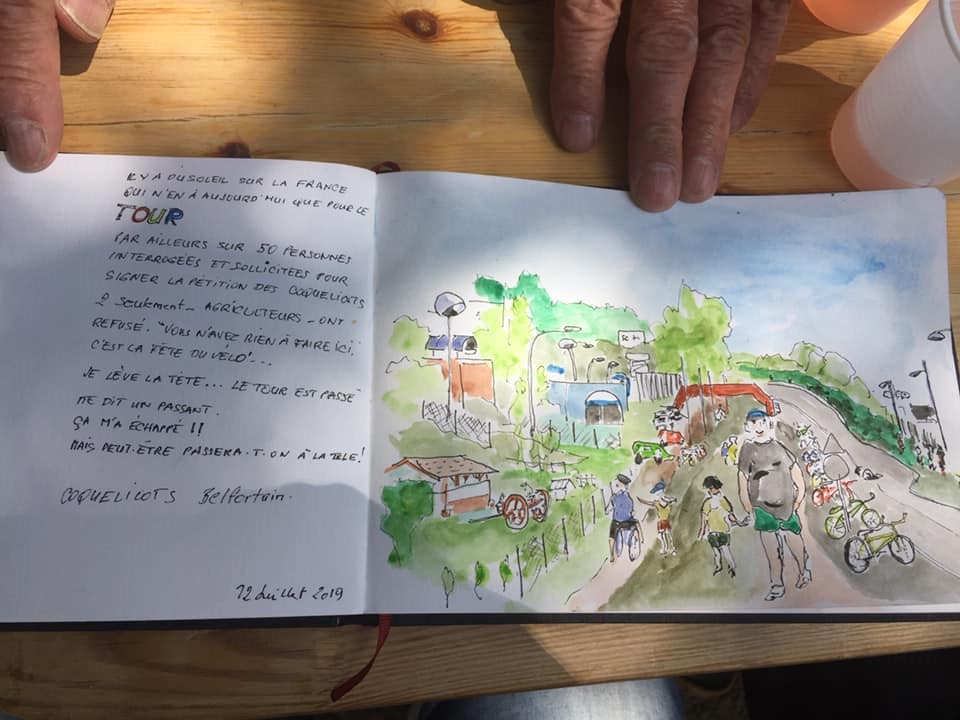 IL Y A DU SOLEIL SUR LA FRANCE
QUI N'EN A AUJOURD'HUI QUE POUR LE
TOUR
PAR AILLEURS SUR 50 PERSONNES
INTERROGÉES ET SOLLICITÉES POUR
SIGNER LA PÉTITION DES COQUELICOTS
2 SEULEMENT - AGRICULTEURS - ONT
REFUSÉ. "VOUS N'AVEZ RIEN À FAIRE ICI,
C'EST LA FÊTE DU VÉLO"...
JE LÈVE LA TÊTE... LE TOUR EST PASSÉ
ME DIT UN PASSANT.
ÇA M'A ÉCHAPPÉ !!
MAIS PEUT-ÊTRE PASSERA-T-ON À LA TÉLÉ !
COQUELICOTS Belfortain.
12 Juillet 2019